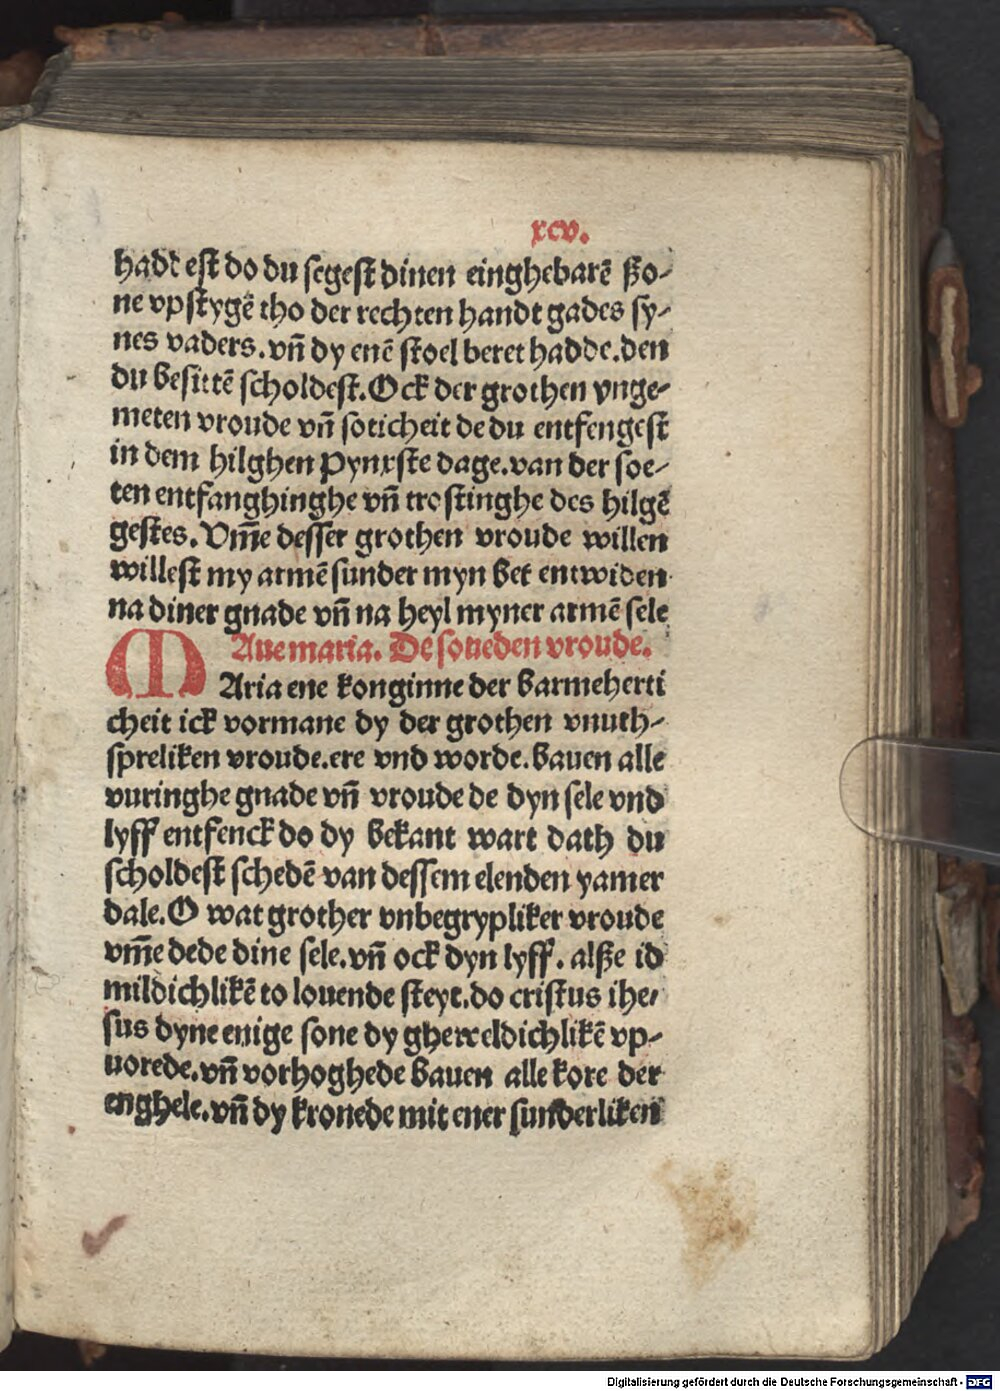 xcv.
hadt est do du segest dinen einghebarē ßo-
ne vpstygē tho der rechten handt gades sy-
nes vaders. vn̄ dy enē stoel beret hadde. den
du besittē scholdest. Ock der grothen vnge-
meten vroude vn̄ soticheit de du entfengest
in dem hilghen Pynxste dage. van der soe-
ten entfanghinghe vn̄ trostinghe des hilgē
gestes. Vm̄e desser grothen vroude willen
willest my armē sunder myn bet entwiden
na diner gnade vn̄ na heyl myner armē sele
Aue maria. De soueden vroude.
MAria ene konginne der barmeherti
cheit ick vormane dy der grothen vnuth-
spreliken vroude. ere vnd worde. bauen alle
vuringhe gnade vn̄ vroude de dyn sele vnd
lyff entfenck do dy bekant wart dath du
scholdest schedē van dessem elenden yamer
dale. O wat grother vnbegrypliker vroude
vm̄e dede dine sele. vn̄ ock dyn lyff. alße id
mildichlikē to louende steyt. do cristus ihe-
sus dyne enige sone dy gheweldichlikē vp-
uorede. vn̄ vorhoghede bauen alle kore der
enghele. vn̄ dy kronede mit ener sunderliken
Digitalisierung gefördert durch die Deutsche Forschungsgemeinschaft - DFG